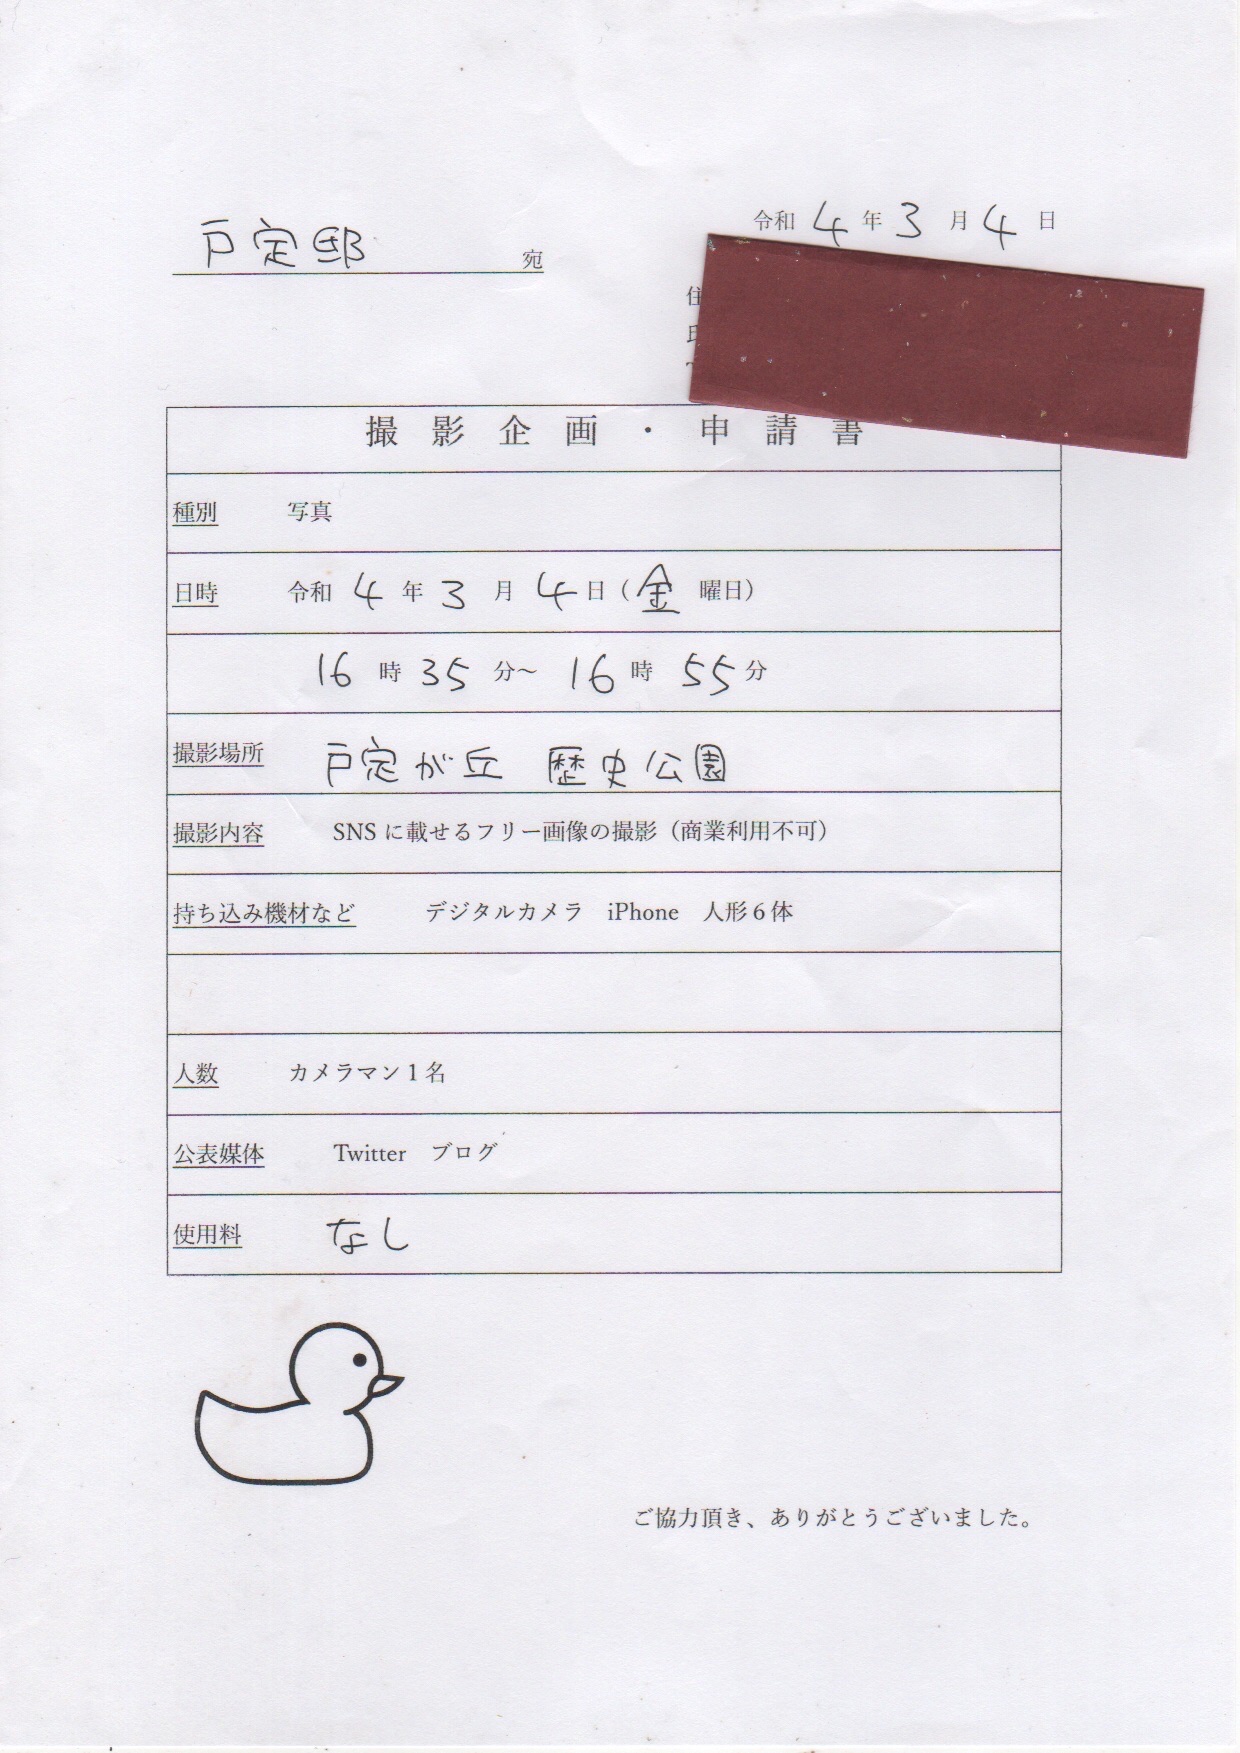 令和 4 年 3 月 4 日
戸定邸 宛
住
撮影企画・申請書
種別 写真
日時 令和 4 年 3 月 4 日（金 曜日）
16 時 35 分～ 16 時 55 分
撮影場所 戸定が丘 歴史公園
撮影内容 SNS に載せるフリー画像の撮影（商業利用不可）
持ち込み機材など デジタルカメラ iPhone 人形６体
人数 カメラマン１名
公表媒体 Twitter ブログ
使用料 なし
ご協力頂き、ありがとうございました。